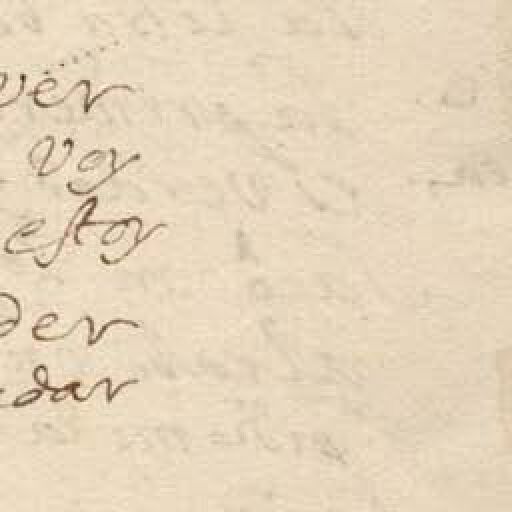 ver
voy
estoy
der
edar